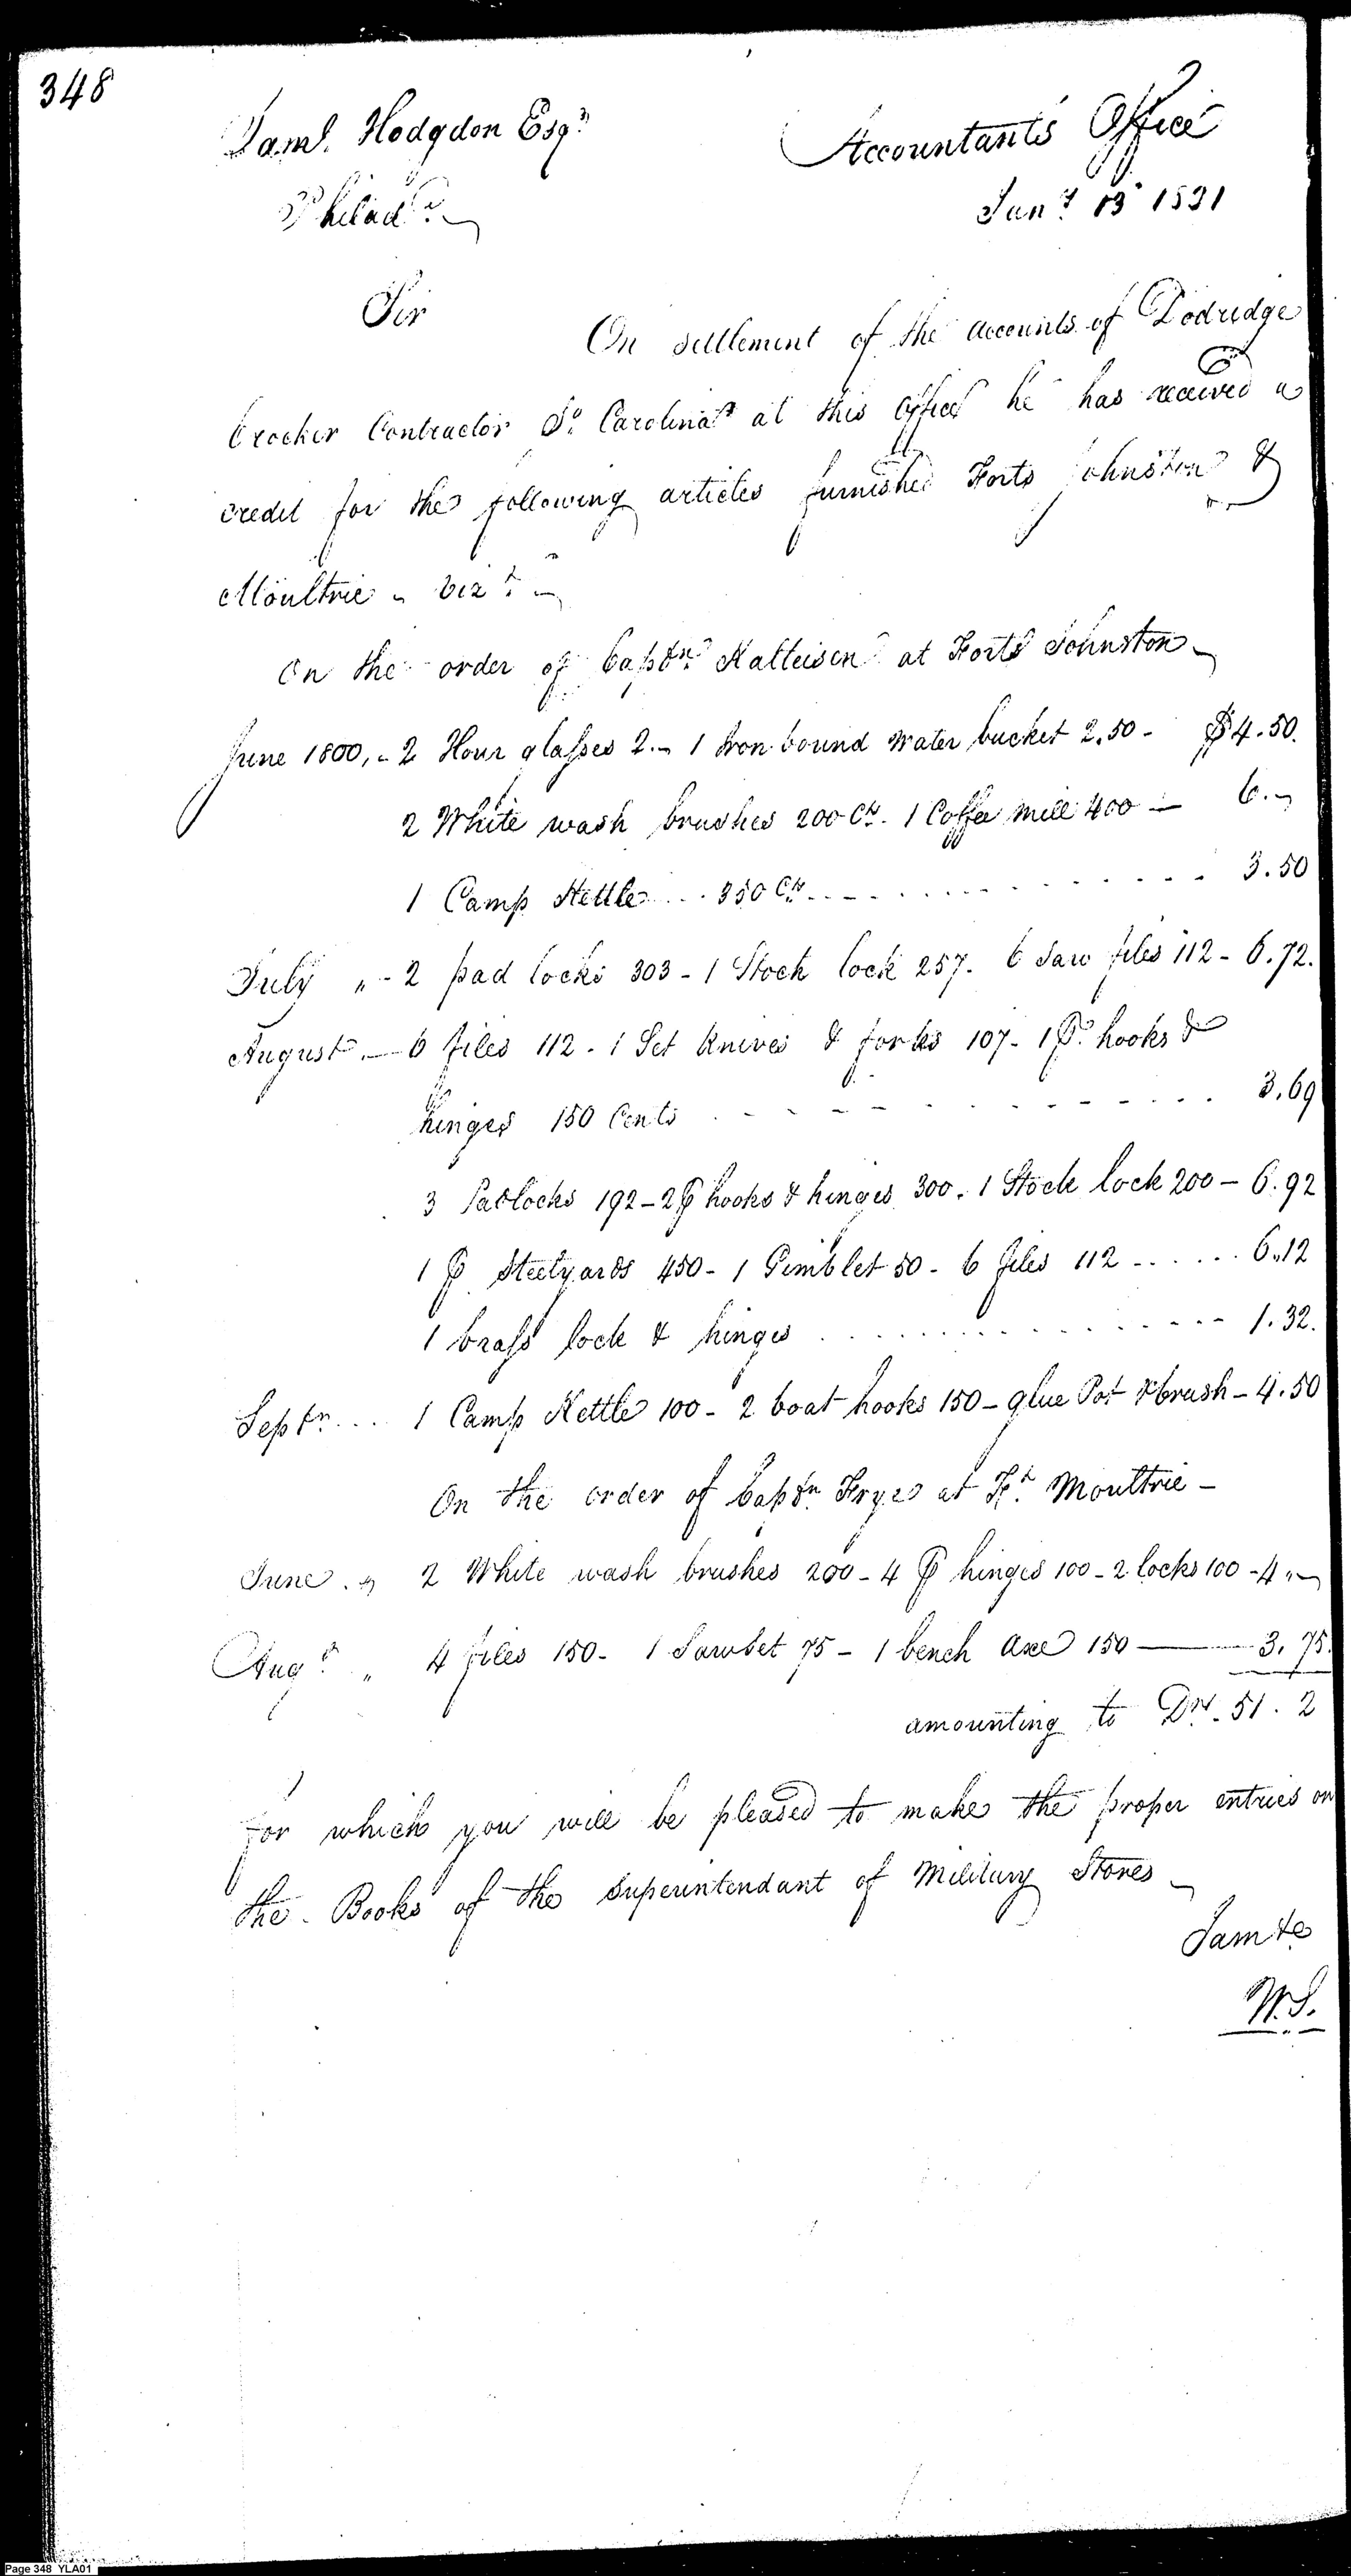 348
Saml. Hodgdon Esqr.
Accountants Office
Philada.
Jany. 13 1801
Sir
On settlement of the accounts of Dodridge
Crocker Contractor So. Carolina at this office he has received a
credit for the following articles furnished Forts Johnston &
Moultrie - Vizt. -
On the order of Captn. Kalteisen at Fort Johnston -
June 1800, - 2 Hour glasses 2. - 1 Iron bound water bucket 2.50 - $4.50.
2 White wash brushes 200 Cts. 1 Coffee mill 400 - 6. -
1 Camp Kettle ... 350 Cts. ... 3.50
July " - 2 pad locks 303 - 1 Stock lock 257. 6 Saw files 112 - 6.72.
August - 6 files 112. 1 Set Knives & forks 107 - 1 Pr. hooks &
hinges 150 Cents ... 3.69
3 Padlocks 192 - 2 P hooks & hinges 300. 1 Stock lock 200 - 6.92
1 P Steelyards 450 - 1 Gimblet 50 - 6 files 112 ..... 6.12
1 brass lock & hinges ... 1.32.
Septr. ... 1 Camp Kettle 100 - 2 boat hooks 150 - glue Pot & brush - 4.50
On the order of Captn. Frye at Ft. Moultrie -
June . " 2 White wash brushes 200 - 4 P hinges 100 - 2 locks 100 - 4 " -
Augt. " 4 files 150 - 1 Sawset 75 - 1 bench axe 150 - 3.75.
amounting to Drs. 51.2
for which you will be pleased to make the proper entries on
the Books of the Superintendant of Military Stores -
I am &c
W.S.
Page 348 YLA01